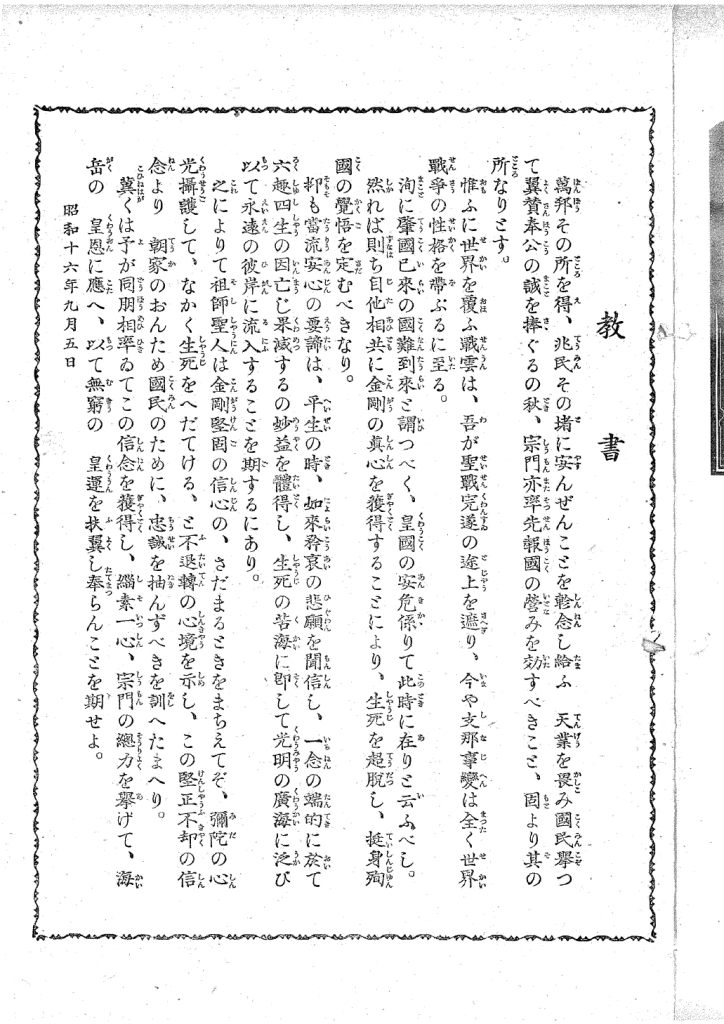 教書
萬邦その所を得、兆民その堵に安んぜんことを軫念し給ふ　天業を畏み國民擧つ
て翼贊奉公の誠を捧ぐるの秋、宗門亦率先報國の營みを効すべきこと、固より其の
所なりとす。
惟ふに世界を覆ふ戰雲は、吾が聖戰完遂の途上を遮り、今や支那事變は全く世界
戰爭の性格を帶ぶるに至る。
洵に肇國已來の國難到來と謂つべく、皇國の安危係りて此時に在りと云ふべし。
然れば則ち自他相共に金剛の眞心を獲得することにより、生死を超脱し、挺身殉
國の覺悟を定むべきなり。
抑も當流安心の要諦は、平生の時、如來矜哀の悲願を聞信し、一念の端的に於て
六趣四生の因亡じ果滅するの妙益を體得し、生死の苦海に即して光明の廣海に泛び
以て永遠の彼岸に流入することを期するにあり。
之によりて祖師聖人は金剛堅固の信心の、さだまるときをまちえてぞ、彌陀の心
光攝護して、なかく生死をへだてける、と不退轉の心境を示し、この堅正不却の信
念より　朝家のおんため國民のために、忠誠を抽んずべきを訓へたまへり。
冀くは予が同朋相率ゐてこの信念を獲得し、緇素一心、宗門の總力を擧げて、海
岳の　皇恩に應へ、以て無窮の　皇運を扶翼し奉らんことを期せよ。
昭和十六年九月五日